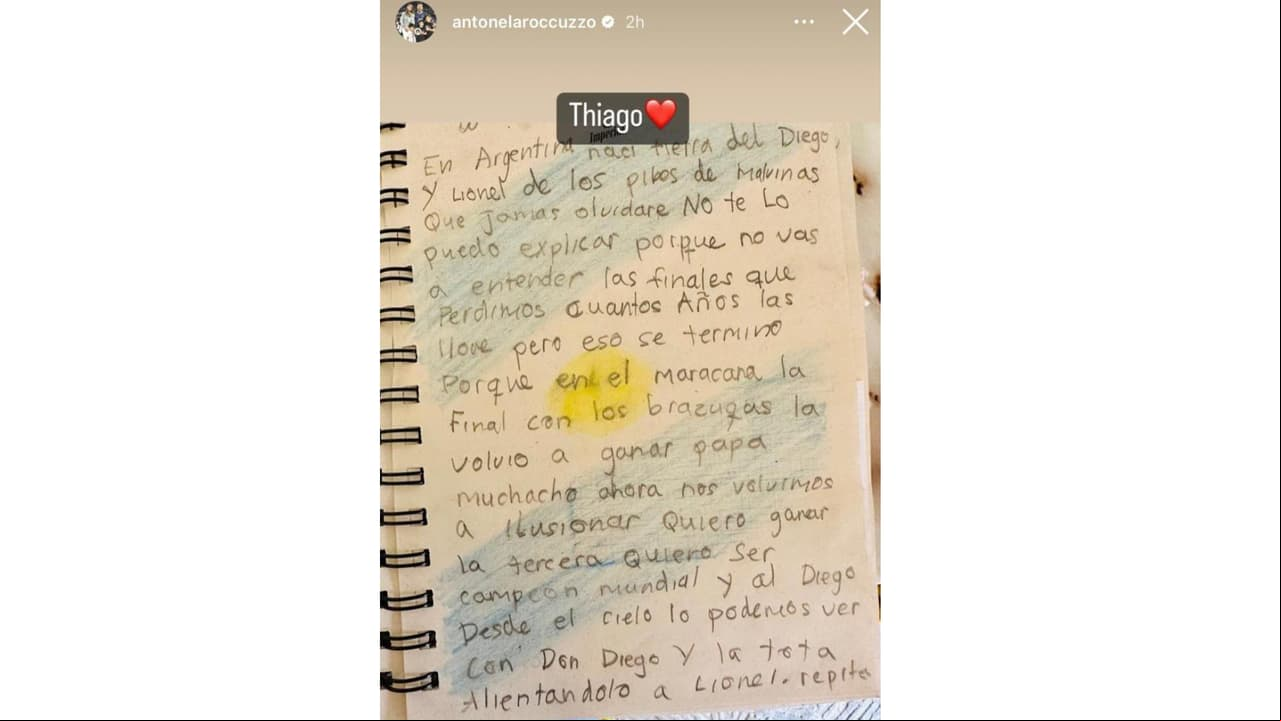 antonelaroccuzzo 2h
Thiago
En Argentina naci tierra del Diego,
Y Lionel de los pibes de Malvinas
Que Jamas olvidare No te Lo
puedo explicar porque no vas
a entender las finales que
Perdimos cuantos Años las
llore pero eso se termino
Porque en el maracana la
Final con los brazugas la
volvio a ganar papa
muchacho ahora nos volvimos
a Ilusionar Quiero ganar
la tercera Quiero Ser
campeon mundial y al Diego
Desde el cielo lo podemos ver
con Don Diego Y la tota
Alientandolo a Lionel. repite